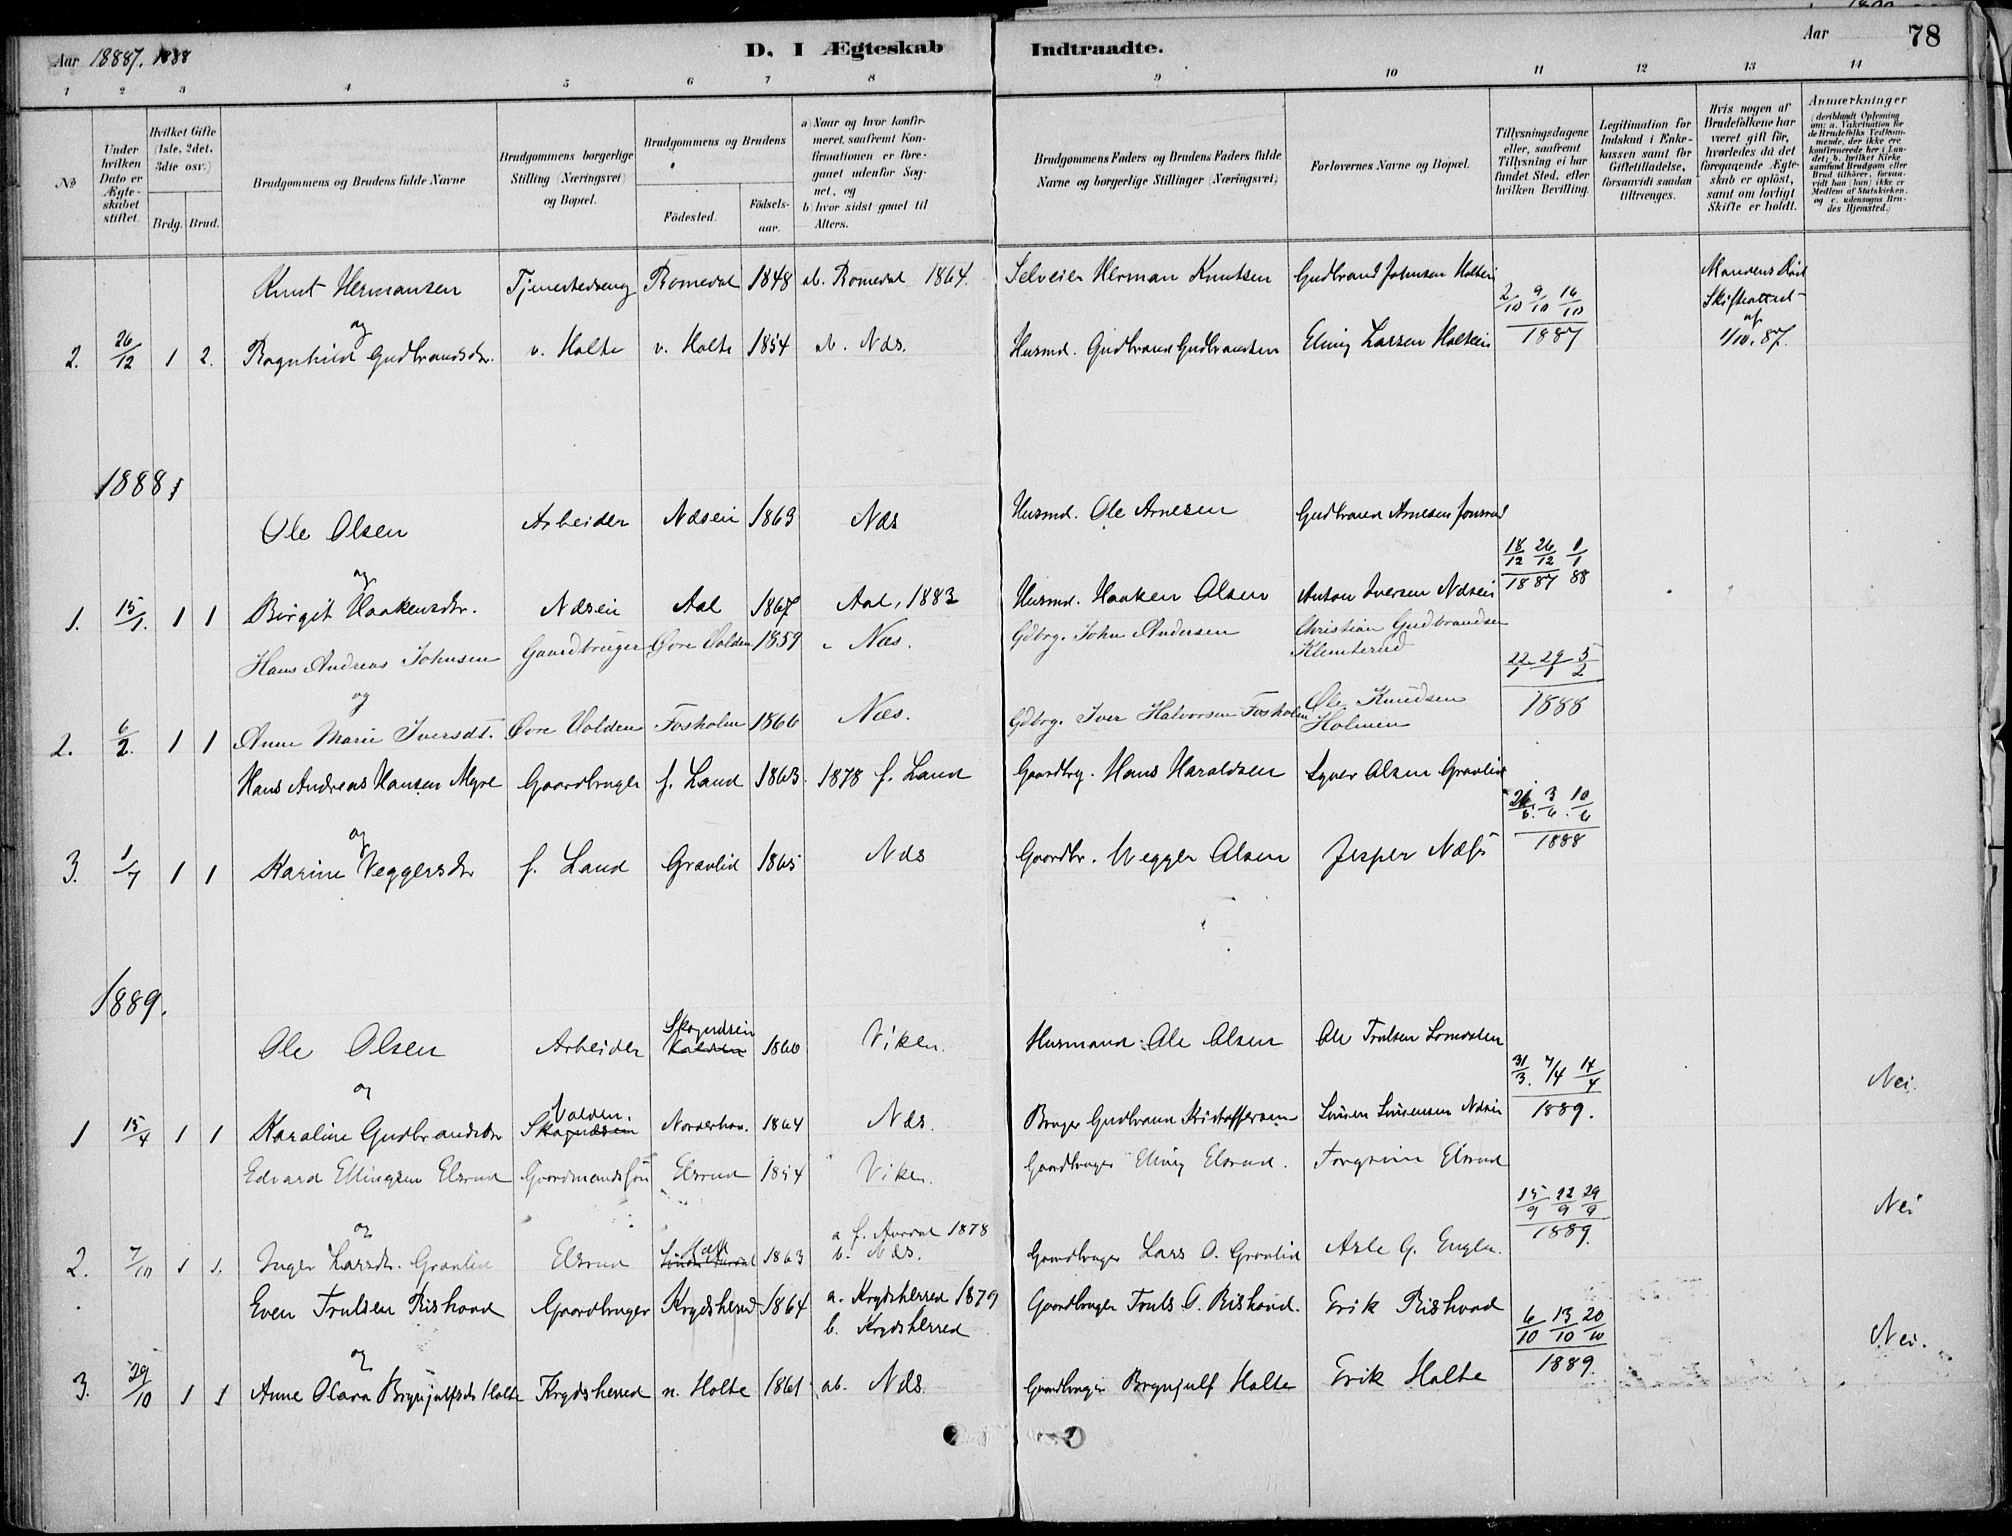 Aar 18887. 1888
D. I Ægteskab Indtraadte.
Aar 78
1 2 3 4 5 6 7 8 9 10 11 12 13 14
No
Under hvilken Dato er Ægteskabet stiftet.
Hvilket Gifte (1ste, 2det, 3die osv.)
Brdg. Brud.
Brudgommens og Brudens fulde Navne
Brudgommens borgerlige Stilling (Næringsvei) og Bopæl.
Brudgommens og Brudens
Fødested.
Fødselsaar.
a) Naar og hvor konfirmeret, saafremt Konfirmationen er foregaaet udenfor Sognet, og
b) hvor sidst gaaet til Alters.
Brudgommens Faders og Brudens Faders fulde Navne og borgerlige Stillinger (Næringsvei)
Forlovernes Navne og Bopæl.
Tillysningsdagene eller, saafremt Tillysning ei har fundet Sted, efter hvilken Bevilling.
Legitimation for Indskud i Enkekassen samt for Giftetilladelse, forsaavidt saadan tiltrænges.
Hvis nogen af Brudefolkene har været gift før, hvorledes da det foregaaende Ægteskab er opløst, samt om lovligt Skifte er holdt.
Anmærkninger (deriblandt Oplysning om: a. Vakcination for de Brudefolks Vedkommende, der ikke ere konfirmerede her i Landet; b. hvilket Kirkesamfund Brudgom eller Brud tilhører, forsaavidt han (hun) ikke er Medlem af Statskirken, og c. udensogns Brudes Hjemsted.)
Knut Hermansen Tjenestedreng Romedal 1848 ab. Romedal 1864. Selveier Herman Knutsen Gudbrand Johnsen Holteei 2/10 9/10 16/10 Mandens Død
og Skifteattest af
2. 26/12 1 2. Ragnhild Gudbrandsdr. v. Holte v. Holte 1854 ab. Næs. Husmd. Gudbrand Gudbrandsen Elling Larsen Holteei 1887 1/10. 87.
1888
Ole Olsen Arbeider Næseie 1863 Næs Husmd. Ole Arnesen Gudbrand Arnesen
og 18/12 26/12 1/1
1. 15/1. 1 1 Birgit Haakensdr. Næseie Aal 1867 Aal, 1883 Husmd. Haaken Olsen Anton Iversen Næseie 1887 88
Hans Andreas Johnsen Gaardbruger Øvre Volden 1859 Næs. Gdbrg. John Andersen Christian Gudbrandsen Klemterud
og 22/1 29/1 5/2
2. 6/2. 1 1 Anne Marie Iversdt. Øvre Volden Fosholm 1866 Næs. Gdbrg. Iver Halvorsen Fosholm Ole Knudsen Holmen 1888
Hans Andreas Hansen Myre Gaardbruger f. Land 1863. 1878 f. Land Gaardbrg. Hans Haraldsen Syver Olsen Gravlid
og 3/6. 10/6
3. 1/7 1 1 Karine Veggersdr f. Land Gravlid 1865 Næs Gaardbr. Vegger Olsen Jesper Næss 1888
1889.
Ole Olsen Arbeider Skagnæsein Volden 1860 Viken. Husmand Ole Olsen Ole Trulsen
og 31/3. 7/4 14/4 Nei.
1 15/4 1 1 Karoline Gudbrandsdr Volden. Skagnæsein Norderhov. 1864 Næs. Bruger Gudbrand Kristoffersen Næsein 1889.
Edvard Ellingsen Elsrud Gaardmandssøn Elsrud 1854 Viken. Gaardbruger Elling Elsrud. Torgrim Elsrud
og a f. Aurdal 1878 15/9 22/9 29/9 Nei
2. 7/10 1 1. Inger Larsdr. Gravlid Elsrud 1863 b. Næs. Gaardbruger Lars O. Gravlid Asle G. 1889.
Even Trulsen Rishovd Gaardbruger Krydsherred 1864 a. Krydsherred 1879 Gaardbruger Truls O. Rishovd. Erik Rishovd
og b. Krydsherred 6/10 13/10 20/10 Nei.
3. 29/10 1 1 Anne Olava Brynjulfsdr Holte Krydsherred n. Holte 1861 ab. Næs. Gaardbruger Brynjulf Holte Erik Holte 1889.